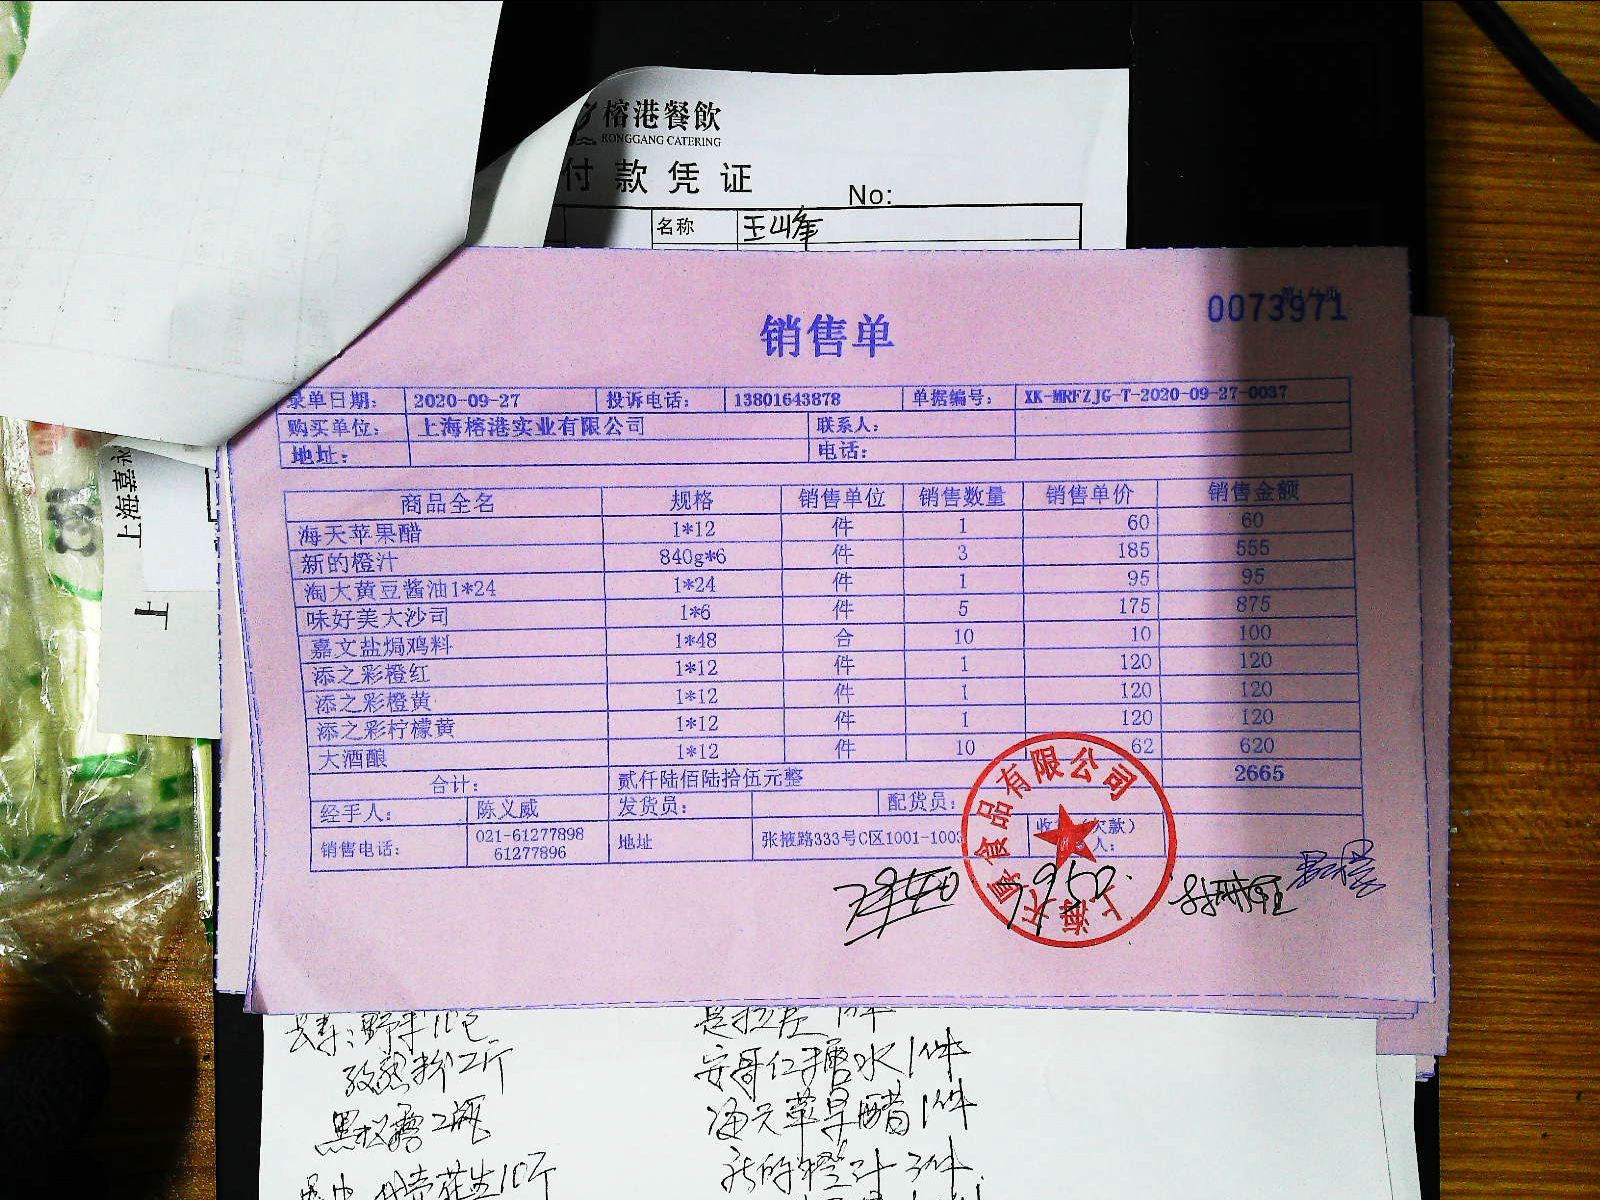 榕港餐飲
RONGGANG CATERING
付款凭证
No:
名称 王峰
0073971
销售单
录单日期: 2020-09-27 投诉电话: 13801643878 单据编号: XK-MRFZJG-T-2020-09-27-0037
购买单位: 上海榕港实业有限公司 联系人:
地址: 电话:
商品全名 规格 销售单位 销售数量 销售单价 销售金额
海天苹果醋 1*12 件 1 60 60
新的橙汁 840g*6 件 3 185 555
淘大黄豆酱油1*24 1*24 件 1 95 95
味好美大沙司 1*6 件 5 175 875
嘉文盐焗鸡料 1*48 合 10 10 100
添之彩橙红 1*12 件 1 120 120
添之彩橙黄 1*12 件 1 120 120
添之彩柠檬黄 1*12 件 1 120 120
大酒酿 1*12 件 10 62 620
合计: 贰仟陆佰陆拾伍元整 2665
经手人: 陈义威 发货员: 配货员:
销售电话: 021-61277898 地址 张掖路333号C区1001-1003 收 (欠款)
61277896 人:
有限公司
食品
上海
上海嘉永
上
安哥仁糖水1件
海天苹果醋1件
新的橙汁3件
黑椒露2瓶